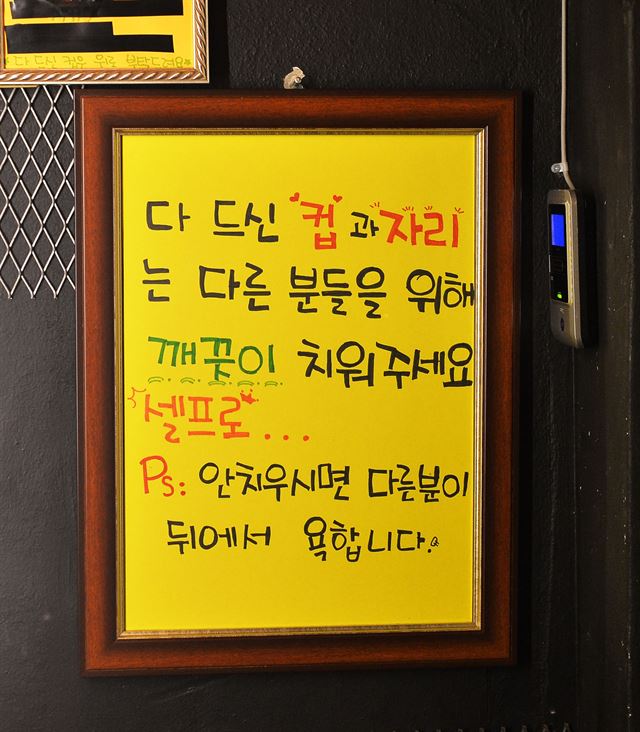 다 드신 컵은 위로 부탁드려요
다 드신 컵과 자리
는 다른 분들을 위해
깨끗이 치워주세요
셀프로...
Ps: 안치우시면 다른분이
뒤에서 욕합니다.